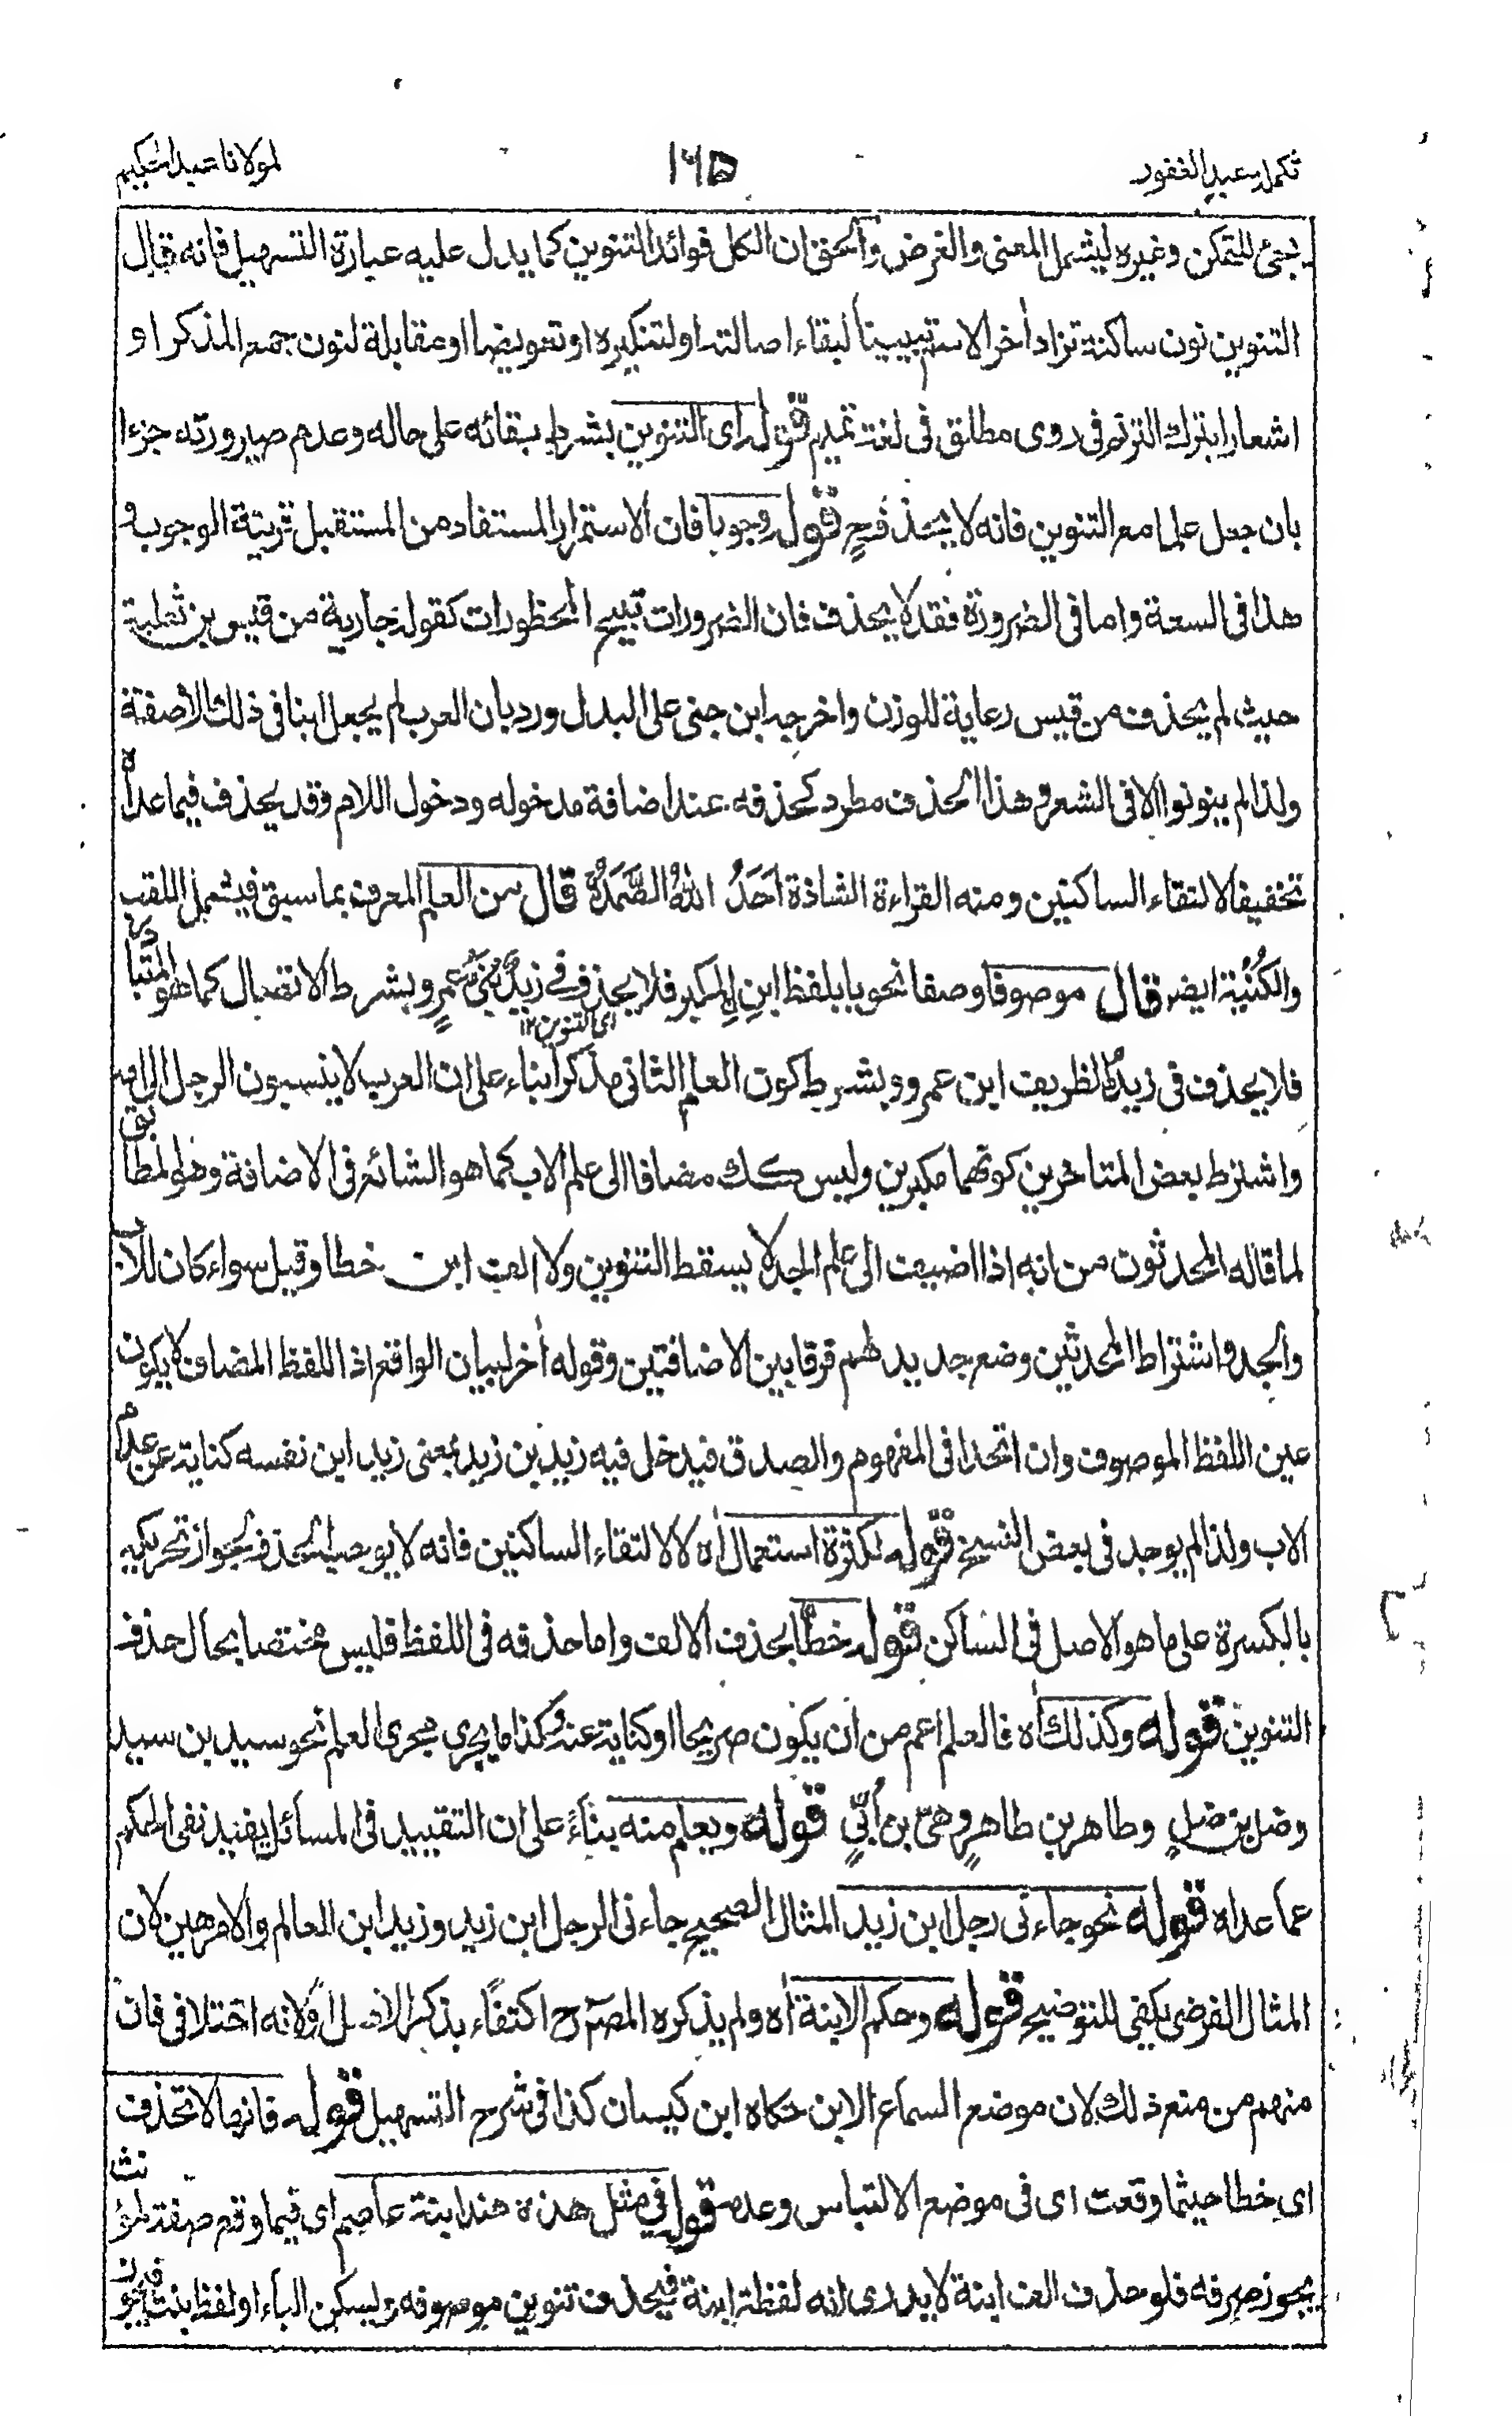 تكمله عبد الغفور
١٦٥
لمولانا عبد الحكيم
يجئ للتمكن وغيره ليشمل المعنى والغرض والحق ان الكل فوائد التنوين كما يدل عليه عبارة التسهيل فانه قال
التنوين نون ساكنة تزاد اٰخر الاسم تبيينا لبقاء اصالته او لتنكيره او تعويضا او مقابلة لنون جمع المذكر او
اشعارا بترك الترنم فى روى مطلق فى لغت تميم قوله اى التنوين بشرط بقائه على حاله وعدم صيرورته جزءا
بان جعل علما مع التنوين فانه لا يحذف ح قوله وجوبا فان الاستمرار المستفاد من المستقبل قرينة الوجوب و
هذا فى السعة واما فى الضرورة فقد لا يحذف فان الضرورات تبيح المحظورات كقوله جارية من قيس بن ثعلبة
حيث لم يحذف من قيس رعاية للوزن واخرجه ابن جنى على البدل ورد بان العرب لم يجعل ابنا فى ذلك الا صفة
ولذا لم ينونوا الا فى الشعر و هذا الحذف مطرد كحذفه عند اضافة مدخوله ودخول اللام وقد يحذف فيما عداه
تخفيفا لالتقاء الساكنين ومنه القراءة الشاذة اَحَدُ اللّٰهُ الصَّمَدُ قال من العلم المعرف بما سبق فيشمل اللقب
والكُنْيَة ايضا قال موصوفا وصفا نحويا بلفظ ابن المكبر فلا يحذف فى زيدٌ بُنَىُّ عمرٍو بشرط الاتصال كما هو المتبادر
اى التنوين ١٢
فلا يحذف فى زيدٌ الظريف ابن عمرو وبشرط كون العلم الثانى مذكرا بناء على ان العرب لا ينسبون الرجل الى امه
واشترط بعض المتاخرين كونهما مكبرين وليس كك مضافا الى علم الاب كما هو الشائع فى الاضافة وهو المطابق
لما قاله المحدثون من انه اذا اضيف الى علم الجد لا يسقط التنوين ولا الف ابن خطا وقيل سواء كان للاب
والجد واشتراط المحدثين وضع جديد لهم فرقا بين الاضافتين وقوله اٰخر لبيان الواقع اذ اللفظ المضاف لا يكون
عين اللفظ الموصوف وان اتحدا فى المفهوم والصدق فيدخل فيه زيد بن زيد بمعنى زيد ابن نفسه كناية عن عدم
الاب ولذا لم يوجد فى بعض النسخ قوله لكثرة استعمال اه لا لالتقاء الساكنين فانه لا يوجب الحذف لجواز تحريكه
بالكسرة على ما هو الاصل فى الساكن قوله خطا بحذف الالف واما حذفه فى اللفظ فليس مختصا بحال حذف
التنوين قوله وكذلك اه فالعلم اعم من ان يكون صريحا او كناية عنه وكذا ما يجرى مجرى العلم نحو سيد بن سيد
وضل بن ضلٍ وطاهر بن طاهرٍ و هىّ بن اُبّىٍ قوله ويعلم منه بناءً على ان التقييد فى المسائل يفيد نفى الحكم
عما عداه قوله نحو جاءنى رجل ابن زيد المثال الصحيح جاءنى الرجل ابن زيد وزيد ابن العالم والامر هين لان
المثال الفرضى يكفى للتوضيح قوله وحكم الابنة اه ولم يذكره المصرح اكتفاء بذكر الاصل او لانه اختلافى فان
منهم من منع ذلك لان موضع السماع الابن حكاه ابن كيسان كذا فى شرح التسهيل قوله فانها لا تحذف
اى خطا حيثما وقعت اى فى موضع الالتباس وعدمه قوله فى مثل هذه هند ابنة عاصم اى فيما وقع صفة لمؤنث
يجوز صرفه فلو حذف الف ابنة لا يدرى انه لفظة ابنة فيحذف تنوين موصوفه ويسكن الباء او لفظ بنت فيجوز